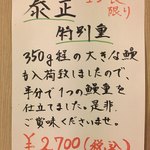 泰正
限り
特別重
350g程の大きな鰻
も入荷致しましたので、
半分で1つの鰻重を
仕立てました。是非
ご賞味くださいませ。
¥2,700(税込)